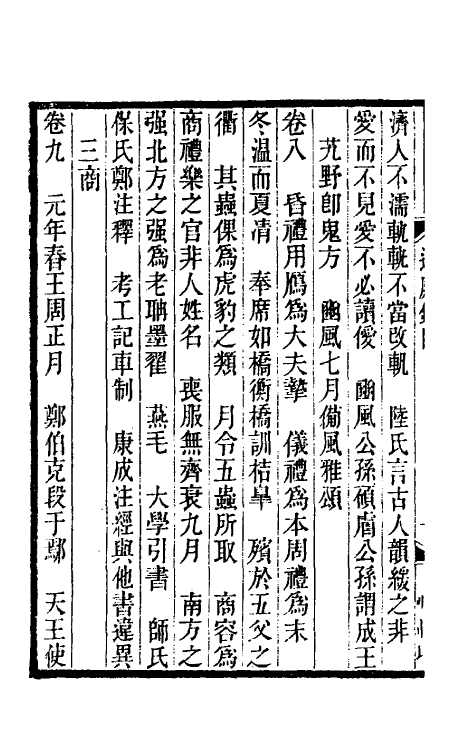 濟人不濡軌軌不當改軓　陸氏言古人韻緩之非
愛而不見愛不必讀僾　豳風公孫碩膚公孫謂成王
艽野卽鬼方　豳風七月備風雅頌
卷八　昏禮用鴈爲大夫摯　儀禮爲本周禮爲末
冬温而夏凊　奉席如橋衡橋訓桔臯　殯於五父之
衢　其蟲倮爲虎豹之類　月令五蟲所取　商容爲
商禮樂之官非人姓名　喪服無齊衰九月　南方之
强北方之强爲老聃墨翟　燕毛　大學引書　師氏
保氏鄭注釋　考工記車制　康成注經與他書違異
三商
卷九　元年春王周正月　鄭伯克段于鄢　天王使